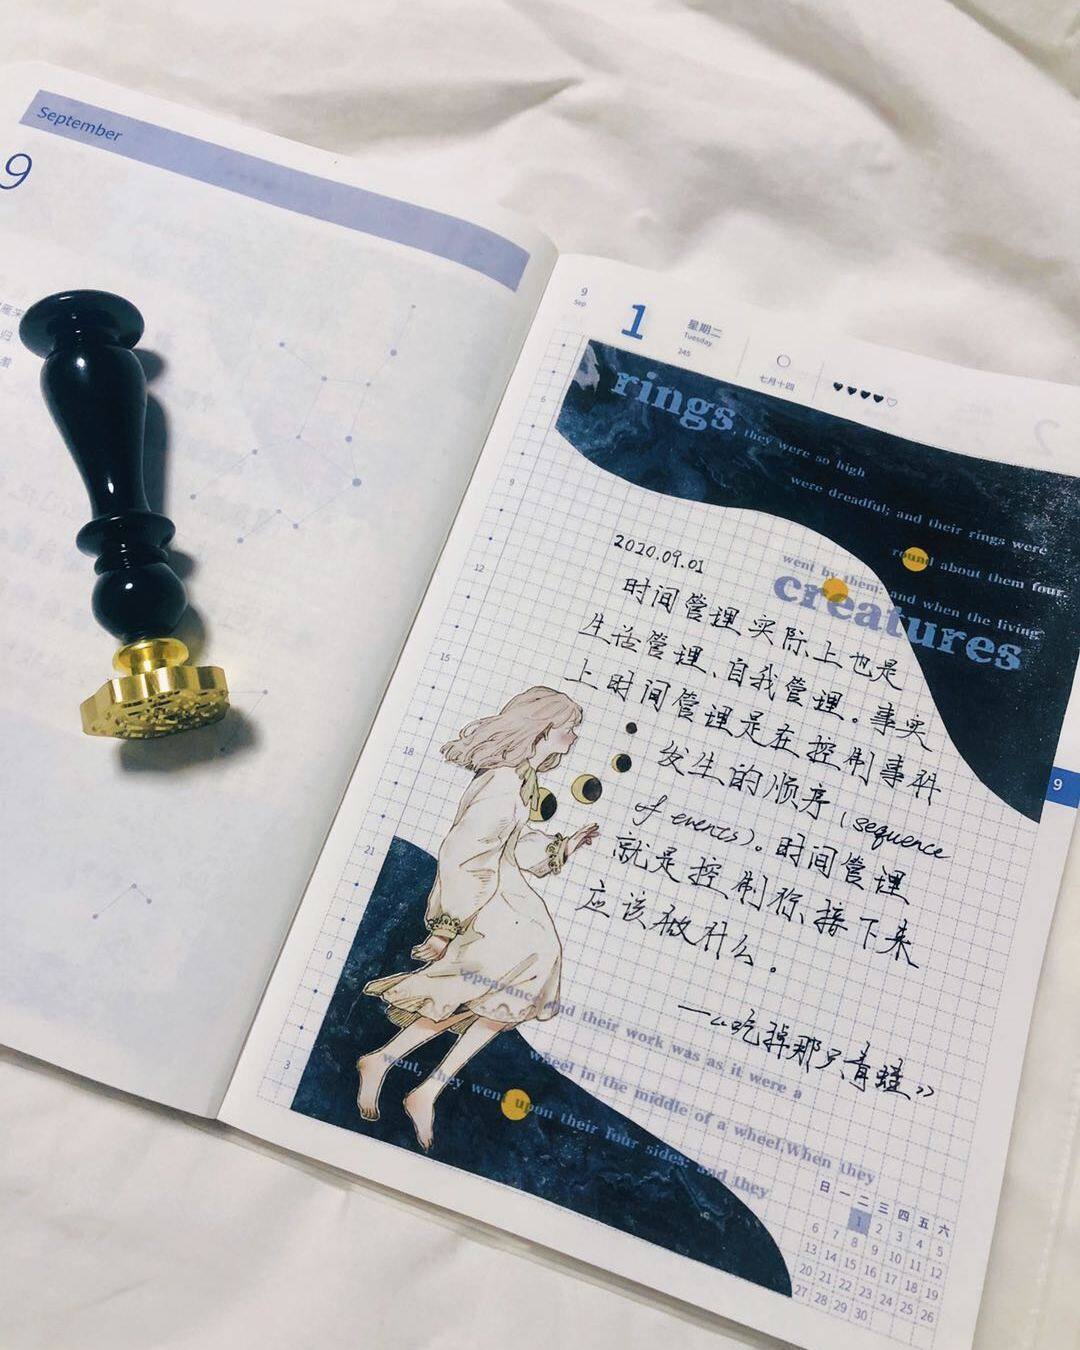 September
9
归
9
Sep
1
星期二
Tuesday
245
七月十四
rings, they were so high
were dreadful; and their rings were
round about them four.
went by them: and when the living
creatures
6
9
12
15
18
21
0
3
9
2020.09.01
时间管理实际上也是
生活管理、自我管理。事实
上时间管理是在控制事件
发生的顺序(sequence
of events)。时间管理
就是控制你接下来
应该做什么。
——《吃掉那只青蛙》
appearance and their work was as it were a
wheel in the middle of a wheel.When they
went, they went upon their four sides: and they
日 一 二 三 四 五 六
1 2 3 4 5
6 7 8 9 10 11 12
13 14 15 16 17 18 19
20 21 22 23 24 25 26
27 28 29 30